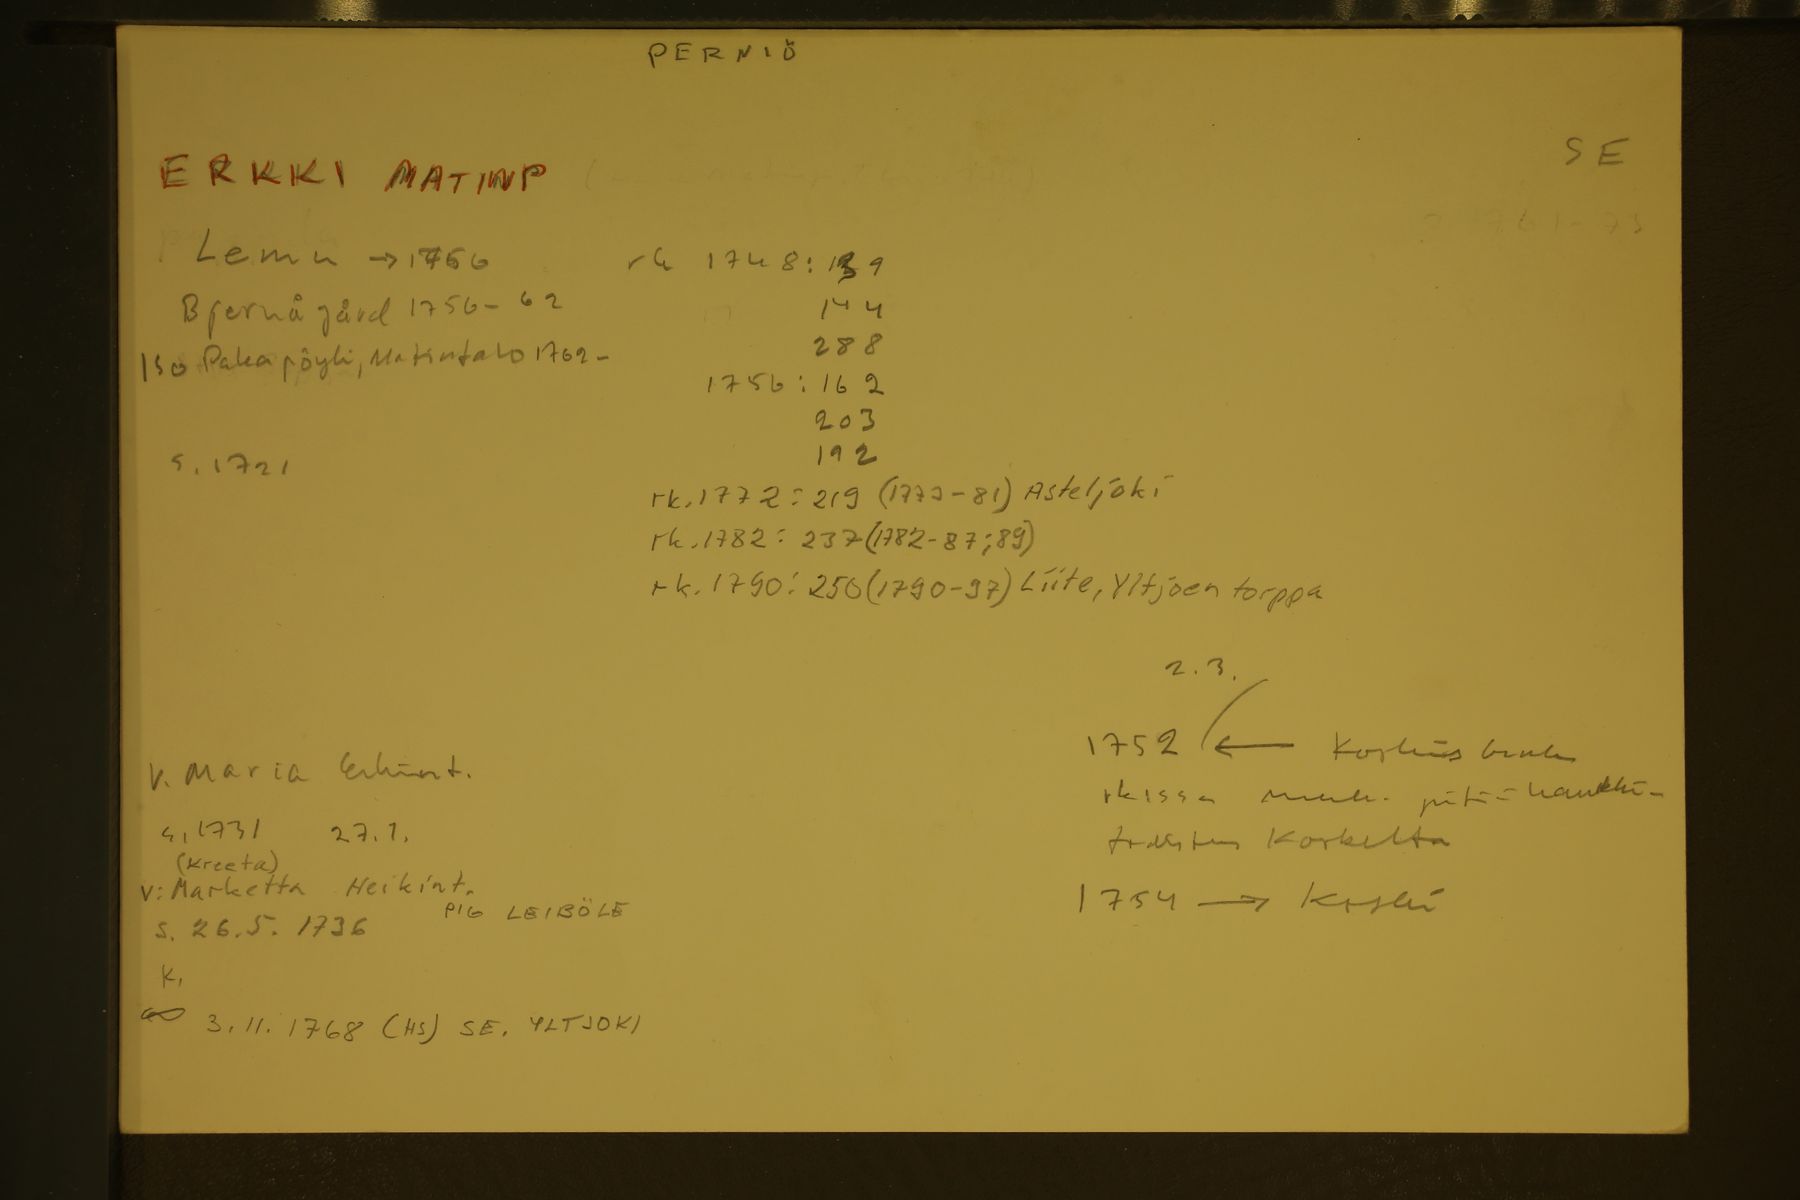 PERNIÖ
SE
ERKKI MATINP
Lemu → 1756
Bjernå gård 1756-62
Iso Pakapöyli, Matintalo 1762-
s. 1721
rk 1748: 139
144
288
1756: 162
203
192
rk. 1772: 219 (1773-81) Asteljoki
rk. 1782: 237 (1782-87; 89)
rk. 1790: 250 (1790-97) Liite, Yltjoen torppa
2.3.
1752 ←
rkissa
Koskelta
1754 → Koski
v. Maria Erkint.
s. 1731 27.1.
(Kreeta)
v: Marketta Heikint.
PIG LEIBÖLE
s. 26.5. 1736
k.
∞ 3.11. 1768 (HS) SE. YLTJOKI